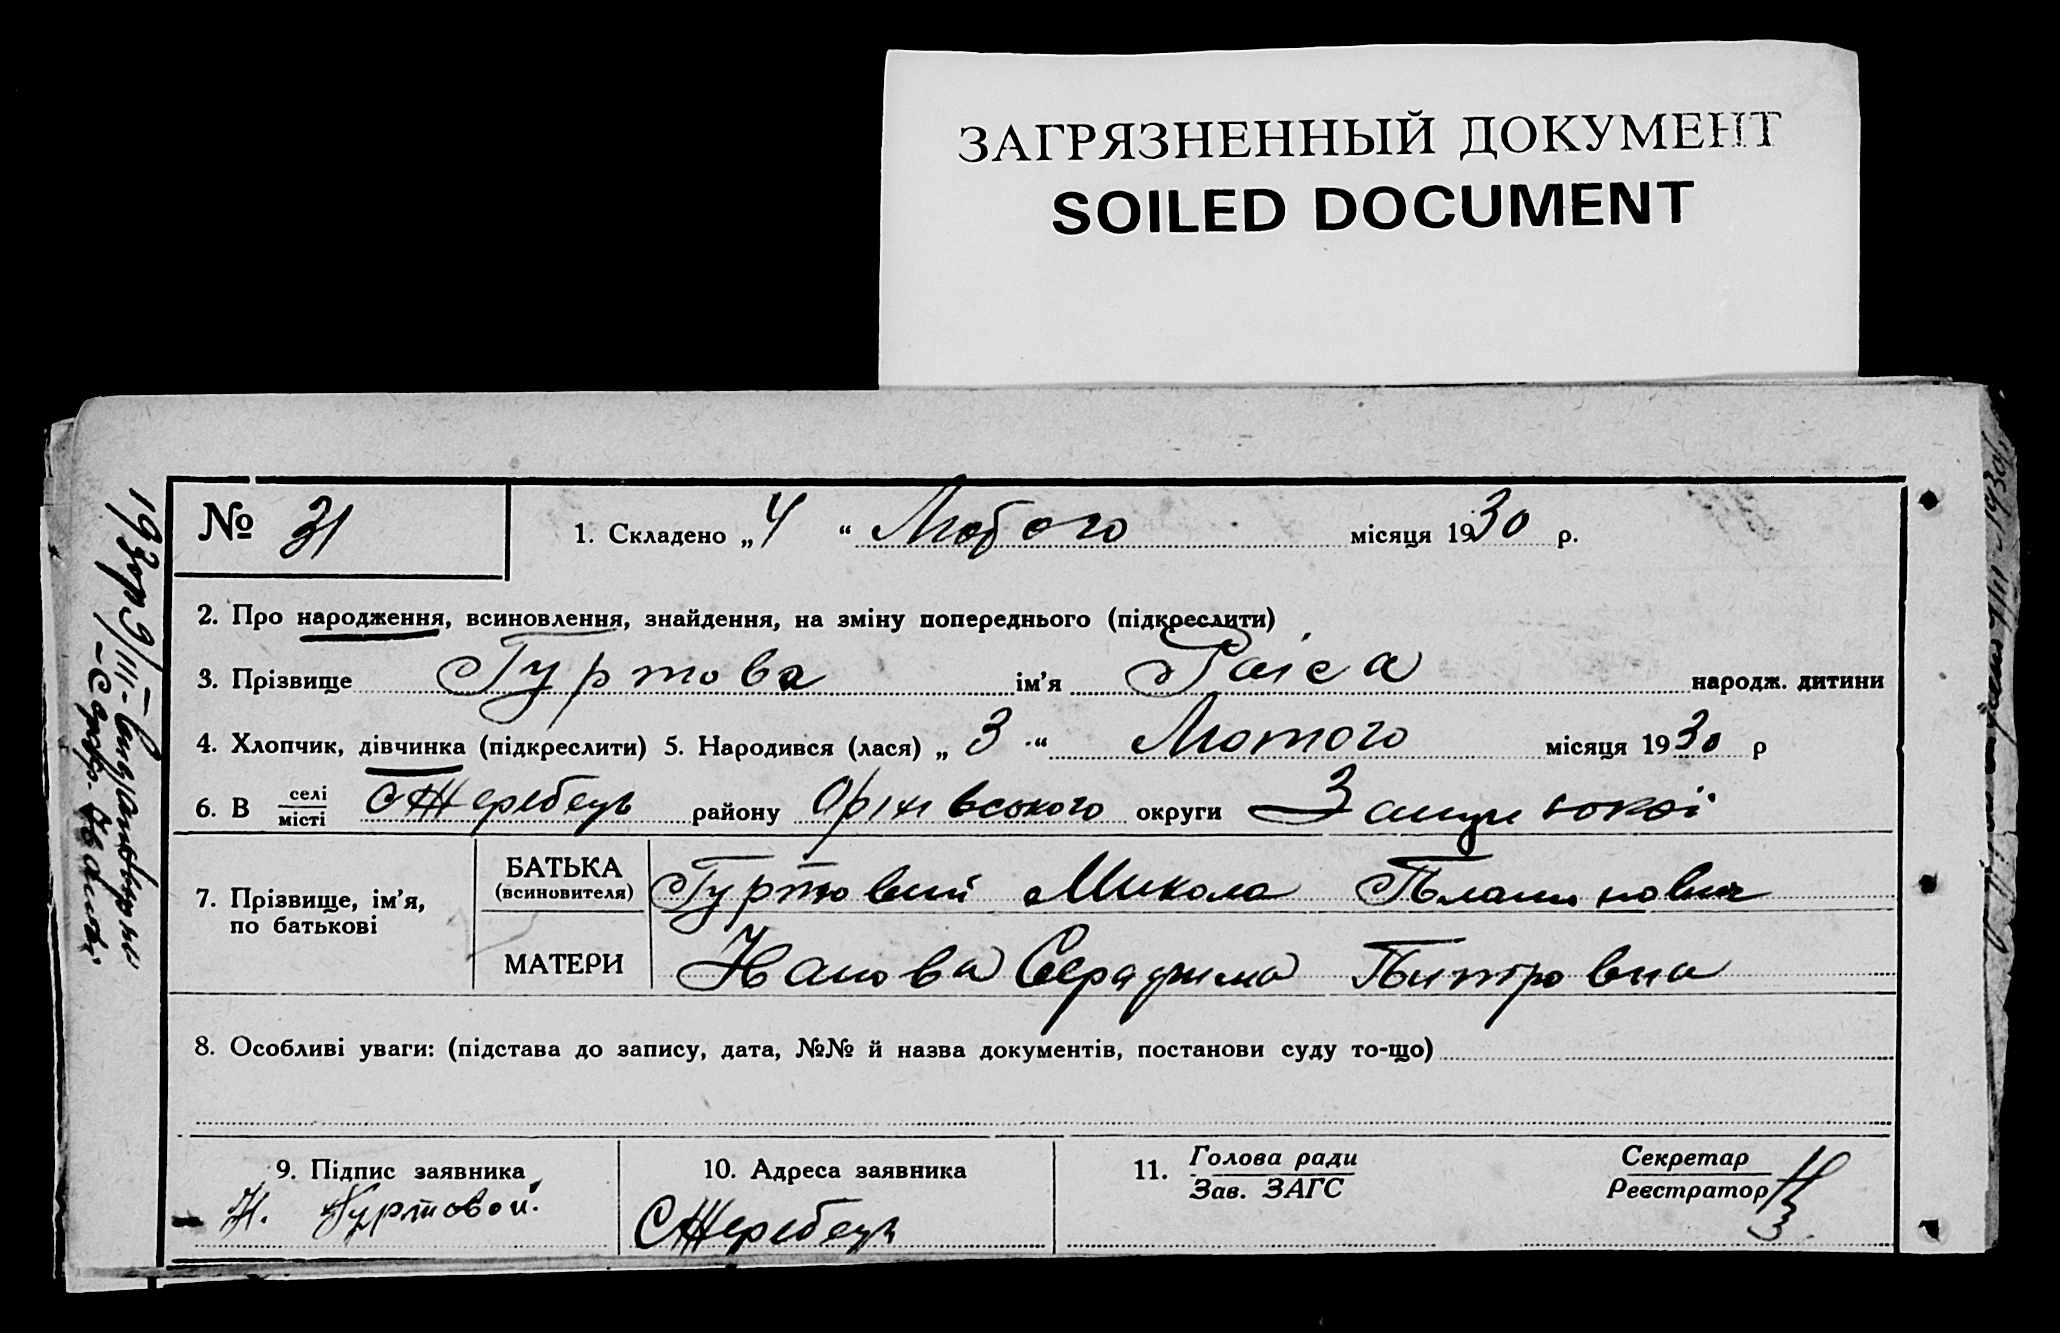 ЗАГРЯЗНЕННЫЙ ДОКУМЕНТ
SOILED DOCUMENT
№ 31
1. Складено „4“ Лютого місяця 1930 р.
2. Про народження, всиновлення, знайдення, на зміну попереднього (підкреслити)
3. Прізвище Гуртова ім'я Раіса народж. дитини
4. Хлопчик, дівчинка (підкреслити) 5. Народився (лася) „3“ Лютого місяця 1930 р
6. В селі місті С Жеребець району Оріхівського округи
7. Прізвище, ім'я, по батькові
БАТЬКА (всиновителя) Гуртовий Микола
МАТЕРИ Серафима Питровна
8. Особливі уваги: (підстава до запису, дата, №№ й назва документів, постанови суду то-що)
9. Підпис заявника
Н. Гуртовой.
10. Адреса заявника
С Жеребець
11. Голова ради
Зав. ЗАГС
Секретар
Реєстратор